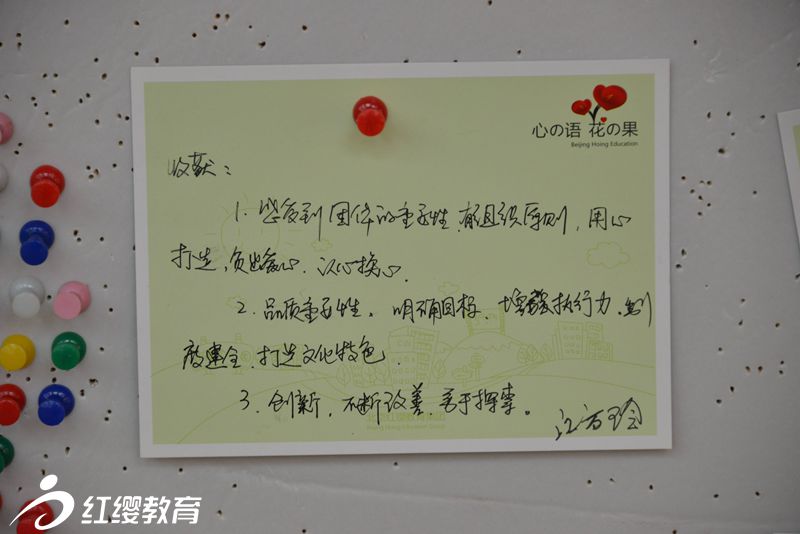 心の语 花の果
Beijing Hoing Education
收获：
1. 感受到团体的重要性，有组织原则，用心
打造，负出爱心，以心换心。
2. 品质重要性。明确目标，增强执行力，制
度建全，打造文化特色。
3. 创新，不断改善，善于探索。
红缨教育